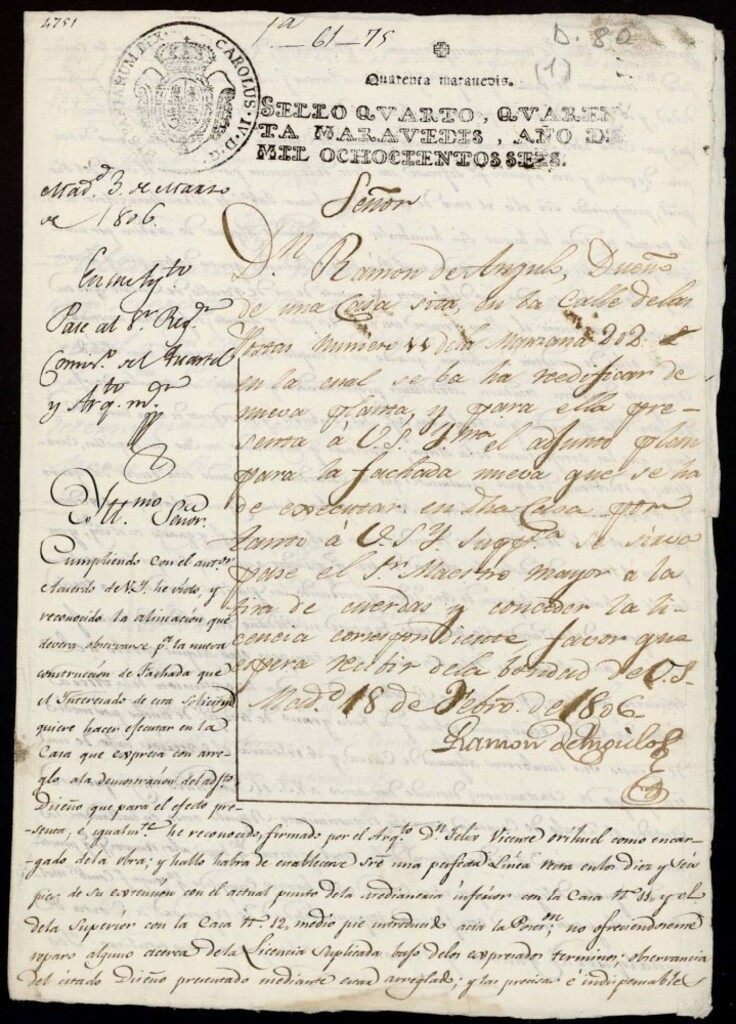 4751
1ª
61-75
D. 80
(1)
CAROLUS IV D. G.
Quarenta marauedis.
SELLO QVARTO, QVAREN
TA MARAVEDIS, AÑO DE
MIL OCHOCIENTOS SEIS.
Madᵈ 3 de Marzo
de 1806.
Pase al Sʳ Regʳ
Comisº del Quartel
y Arqᵗᵒ mʳ
Señor
Dⁿ Ramon de Angulo, Dueño
de una Casa sita, en la Calle delas
Postas numero 11 dela Manzana 202.
en la cual se ba ha redificar de
nueva planta, y para ello pre-
senta à V.S. Yᵐᵃ el adjunto plan
para la fachada nueva que se ha
de executar en dha Casa por
tanto à V.S.Y. suppᶜᵃ se sirva
pase el Sʳ Maestro mayor a la
tira de cuerdas y conceder la li-
cencia correspondiente, favor que
espera recibir dela bondad de V.S.
Madᵈ 18 de Febrº de 1806.
Ramon de Angulo
Yllᵐᵒ Señor.
Cumpliendo con el anterʳ
Acuerdo de V.I. he visto, y
reconocido la alineacion que
devera observarse pᵃ la nueva
construccion de Fachada que
el Interesado de esta solicitud
quiere hacer executar en la
Casa que expresa con arre-
glo ala demostracion del adjᵗᵒ
Diseño que para el efecto pre-
senta, e igualmᵗᵉ he reconocido, firmado por el Arqᵗᵒ Dⁿ Felix Vicente orihuel como encar-
gado dela obra; y hallo habra de establecerse sre una perfecta Linea recta enlos diez y seis
pies de su extension con el actual punto dela medianeria inferior con la Casa nº 11, y el
dela Superior con la Casa nº 12, medio pie introducido acia la Poseⁿ; no ofreciendoseme
reparo alguno acerca dela Licencia Suplicada bajo delos expresados terminos; observancia
del citado Diseño presentado mediante estar arreglado; y las precisas é indispensables